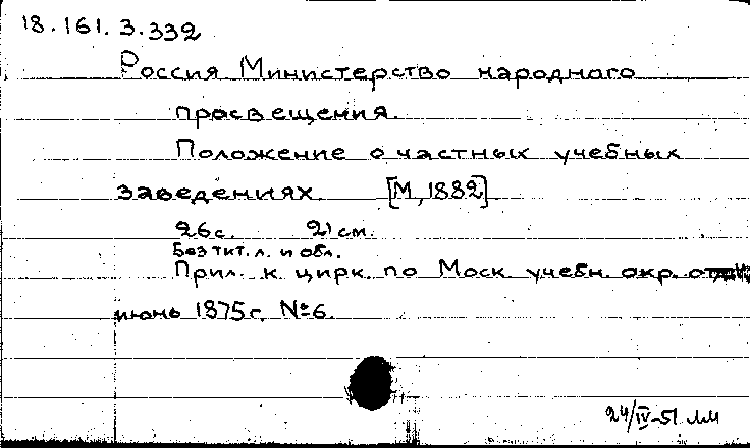 18.161.3.332
Россия Министерство народного
просвещения.
Положение о частных учебных
заведениях. [М, 1882]
26 с. 21 см.
Без тит. л. и обл.
Прил. к цирк. по Моск. учебн. окр.
июнь 1875 г. № 6.
24/IV-51